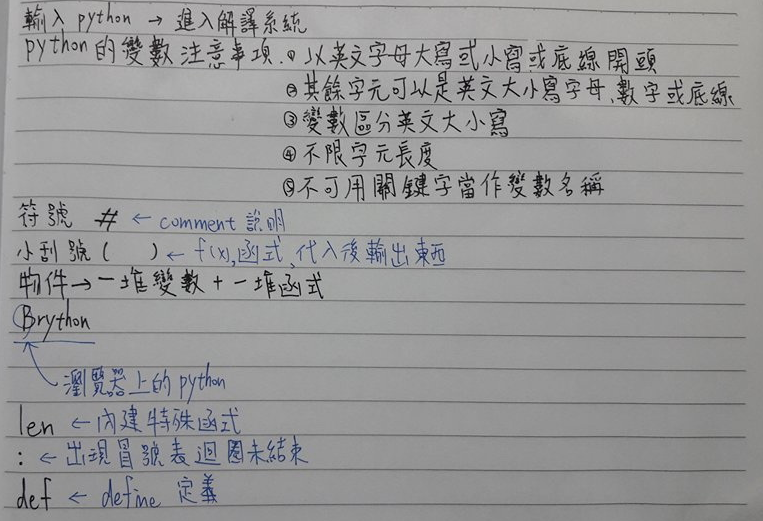 輸入 python → 進入解譯系統
python的變數注意事項.①以英文字母大寫或小寫或底線開頭
②其餘字元可以是英文大小寫字母、數字或底線
③變數區分英文大小寫
④不限字元長度
⑤不可用關鍵字當作變數名稱
符號 # ← comment 說明
小刮號 ( ) ← f(x),函式,代入後輸出東西
物件→一堆變數+一堆函式
Brython
瀏覽器上的python
len ← 內建特殊函式
: ← 出現冒號表迴圈未結束
def ← define 定義